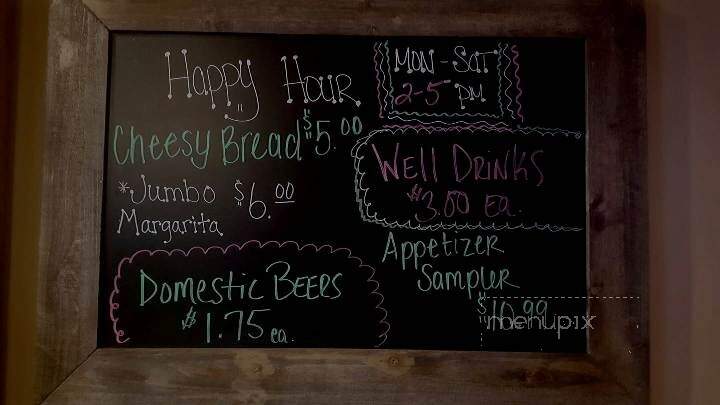 Happy Hour
Mon - Sat
2-5 pm
Cheesy Bread $5.00
*Jumbo $6.00
Margarita
Well Drinks
$3.00 ea.
Domestic Beers
$1.75 ea.
Appetizer
Sampler
$10.99
menupix